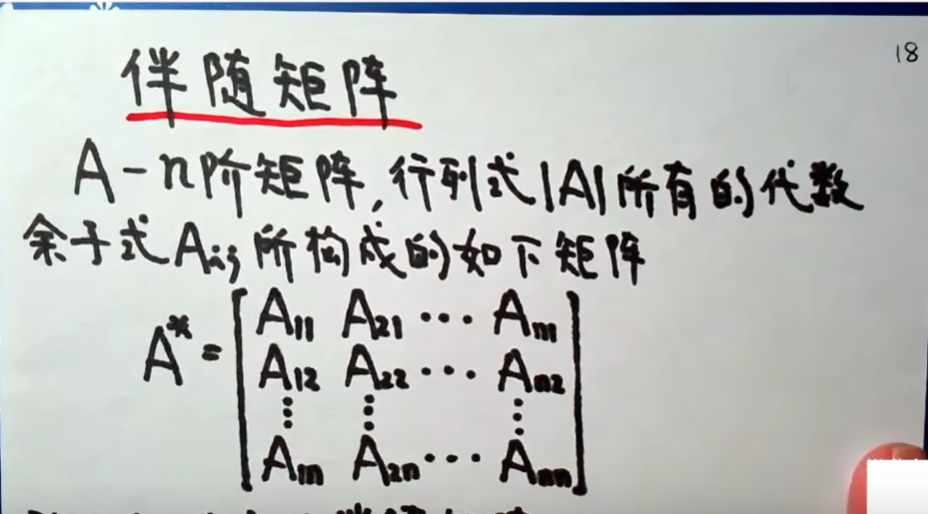 18
伴随矩阵
A-n阶矩阵,行列式|A|所有的代数
余子式Aij所构成的如下矩阵
A* = [A11 A21 ··· An1
A12 A22 ··· An2
⋮ ⋮ ⋮
A1n A2n ··· Ann]